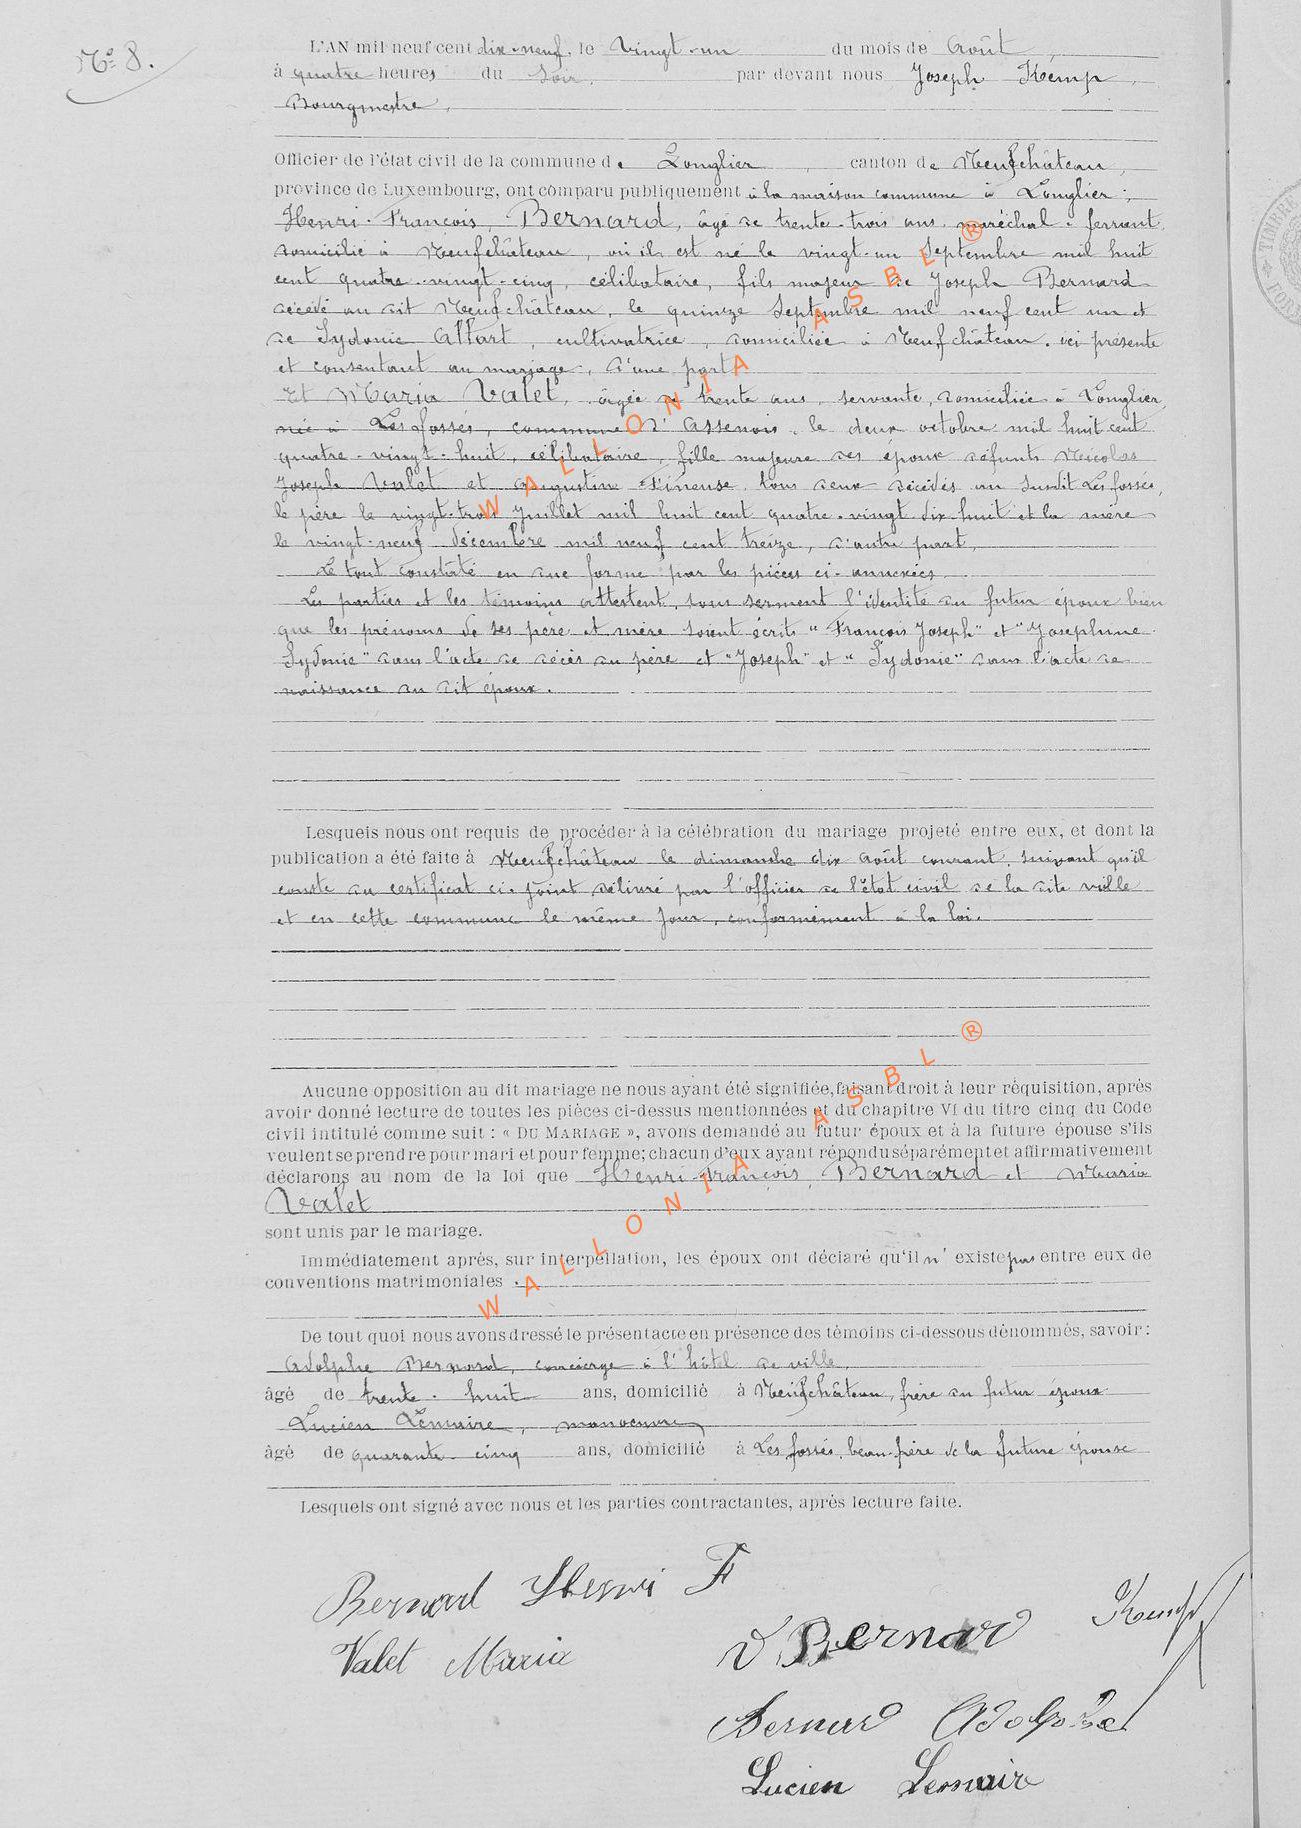 N° 8.
L'AN mil neuf cent dix-neuf, le vingt-un du mois de Août,
à quatre heures du soir, par devant nous Joseph Kemp,
Bourgmestre,
Officier de l'état civil de la commune de Longlier, canton de Neufchâteau,
province de Luxembourg, ont comparu publiquement à la maison commune à Longlier:
Henri-François, Bernard, âgé de trente-trois ans, maréchal-ferrant,
domicilié à Neufchâteau, où il est né le vingt-un Septembre mil huit
cent quatre-vingt-cinq, célibataire, fils majeur de Joseph Bernard
décédé au dit Neufchâteau, le quinze Septembre mil neuf cent un et
de Sydonie Allart, cultivatrice, domiciliée à Neufchâteau, ici présente
et consentant au mariage, d'une part.
Et Maria Valet, âgée de trente ans, servante, domiciliée à Longlier,
née à Les fossés, commune d'Assenois, le deux octobre mil huit cent
quatre-vingt-huit, célibataire, fille majeure des époux défunts Nicolas
Joseph Valet et Augustine tous deux décédés au susdit Les fossés,
le père le vingt-trois Juillet mil huit cent quatre-vingt dix-huit et la mère
le vingt-neuf décembre mil neuf cent treize, d'autre part,
Le tout constaté en due forme par les pièces ci-annexées.
Les parties et les témoins attestent, sous serment l'identité du futur époux bien
que les prénoms de ses père et mère soient écrits "François Joseph" et "Josephine
Sydonie" dans l'acte de décès du père et "Joseph" et "Sydonie" dans l'acte de
naissance du dit époux.
Lesquels nous ont requis de procéder à la célébration du mariage projeté entre eux, et dont la
publication a été faite à Neufchâteau le dimanche dix Août courant, suivant qu'il
conste du certificat ci-joint délivré par l'officier de l'état civil de la dite ville
et en cette commune le même jour, conformément à la loi.
Aucune opposition au dit mariage ne nous ayant été signifiée, faisant droit à leur réquisition, après
avoir donné lecture de toutes les pièces ci-dessus mentionnées et du chapitre VI du titre cinq du Code
civil intitulé comme suit : « DU MARIAGE », avons demandé au futur époux et à la future épouse s'ils
veulent se prendre pour mari et pour femme; chacun d'eux ayant répondu séparément et affirmativement
déclarons au nom de la loi que Henri-François, Bernard et Maria
Valet
sont unis par le mariage.
Immédiatement après, sur interpellation, les époux ont déclaré qu'il n'existe pas entre eux de
conventions matrimoniales.
De tout quoi nous avons dressé le présent acte en présence des témoins ci-dessous dénommés, savoir:
Adolphe Bernard, concierge à l'hôtel de ville,
âgé de trente-huit ans, domicilié à Neufchâteau, frère du futur époux
Lucien Lemaire, manoeuvre,
âgé de quarante-cinq ans, domicilié à Les fossés, beau-frère de la future épouse
Lesquels ont signé avec nous et les parties contractantes, après lecture faite.
Bernard Henri F
Kemp
Valet Maria
V Bernard
Bernard Adolphe
Lucien Lemaire
WALLONIA ASBL ®
WALLONIA ASBL ®
TIMBRE